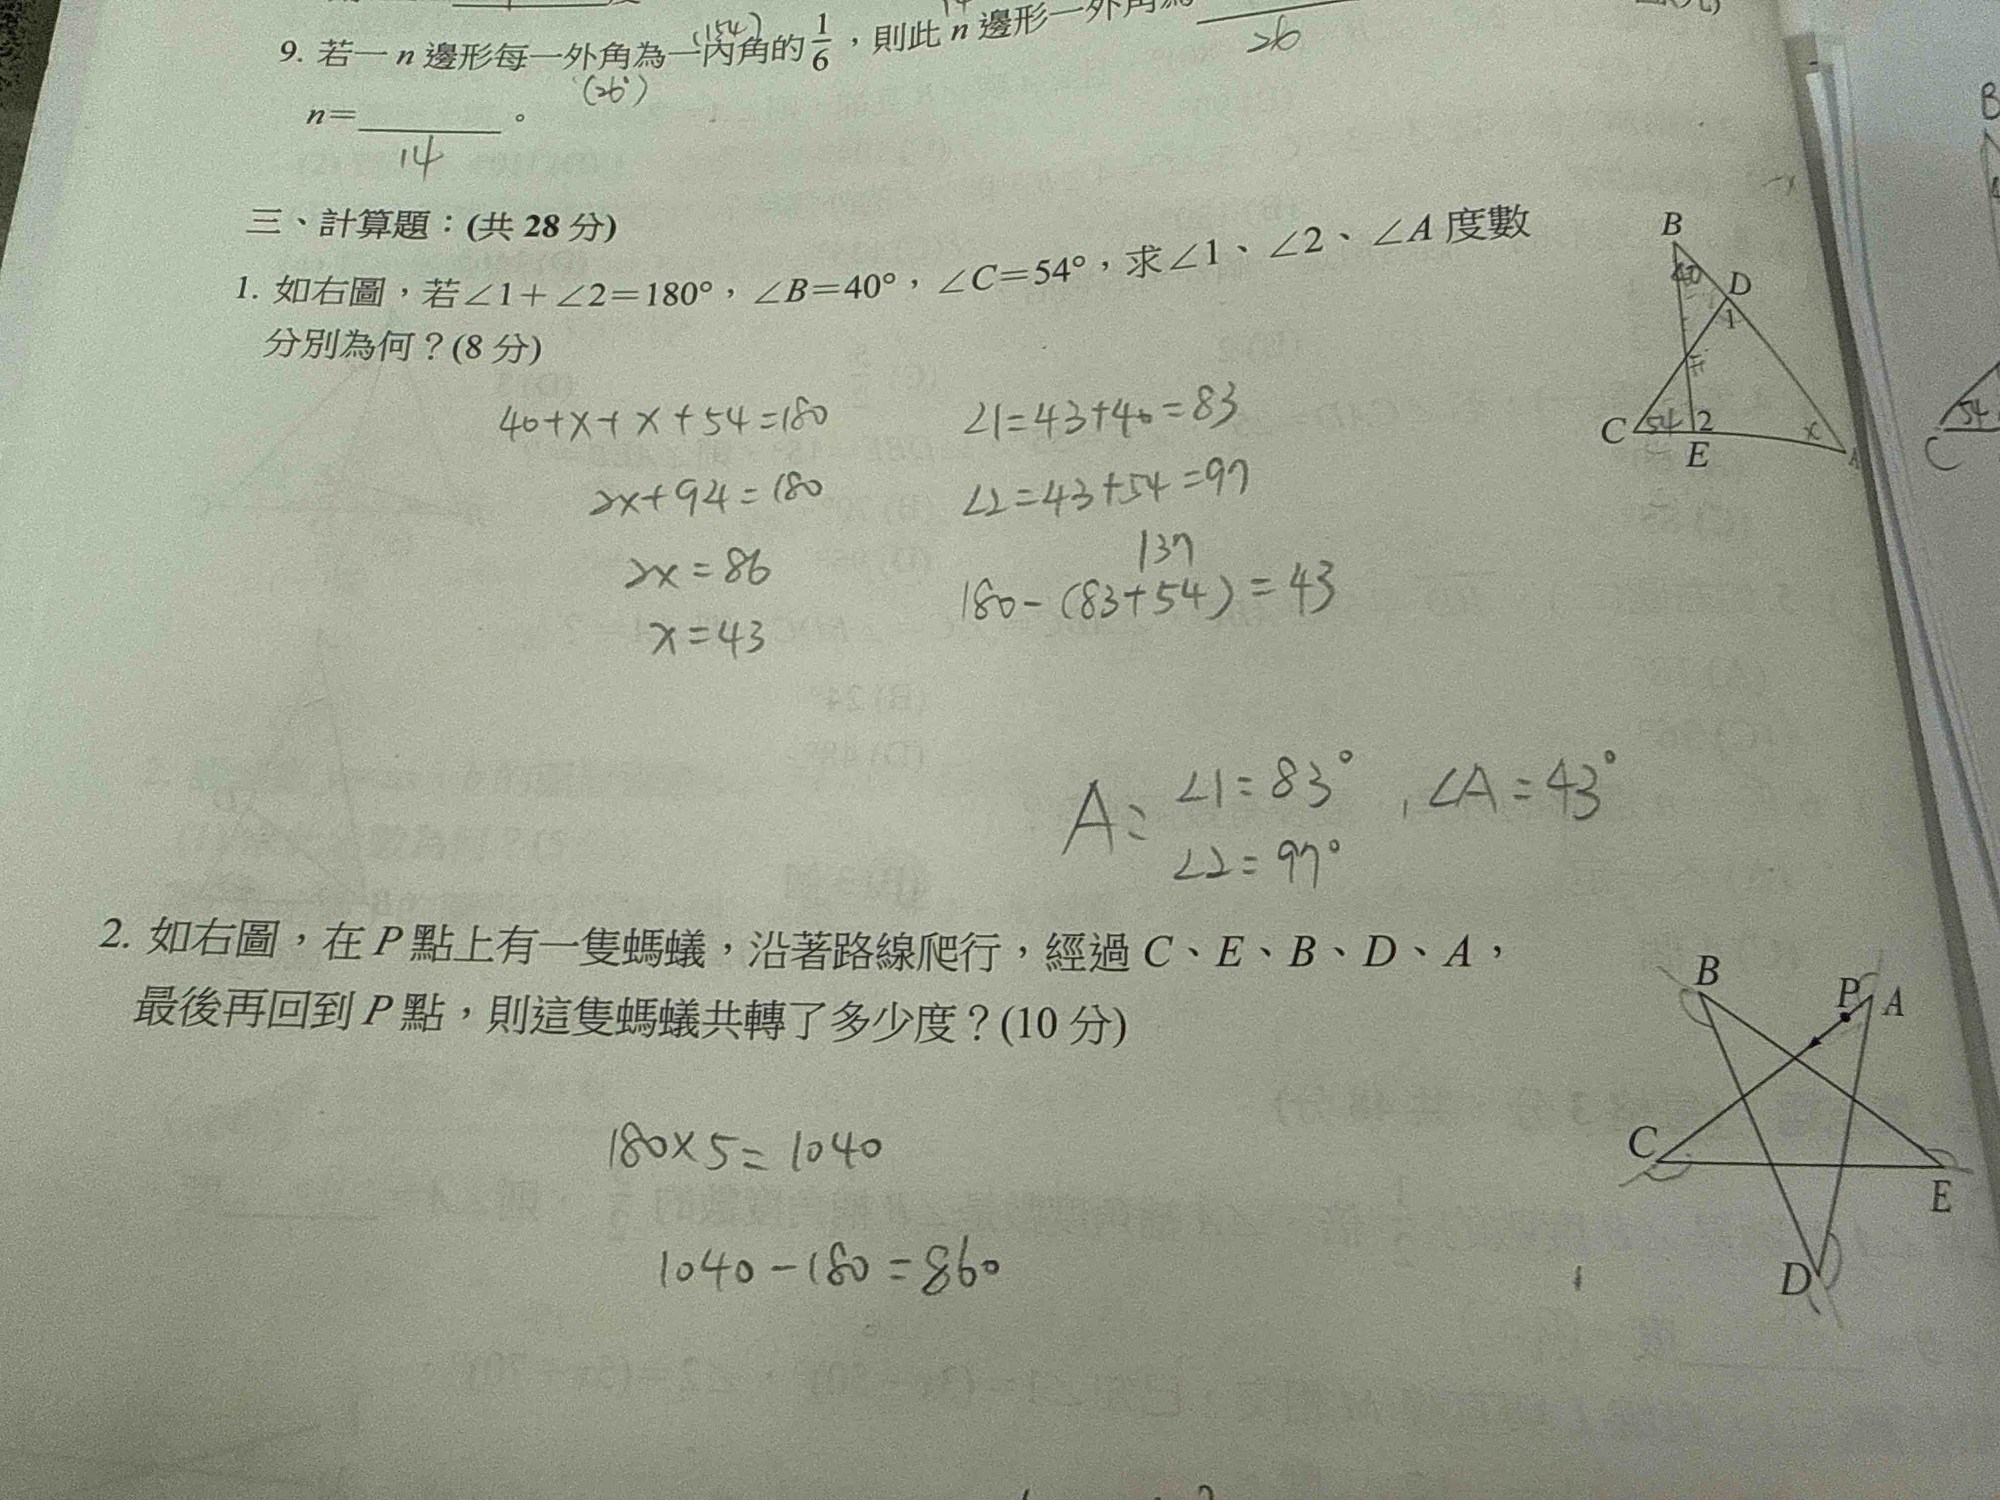 (154)
9. 若一 n 邊形每一外角為一內角的 1/6，則此 n 邊形一外角為
26
(26°)
n=______。
14
三、計算題：(共 28 分)
1. 如右圖，若∠1＋∠2＝180°，∠B＝40°，∠C＝54°，求∠1、∠2、∠A 度數
分別為何？(8 分)
B
40
D
1
C
54
2
E
x
40+x+x+54=180
2x+94=180
2x=86
x=43
∠1=43+40=83
∠2=43+54=97
137
180-(83+54)=43
A= ∠1=83°, ∠A=43°
∠2=97°
B
54
C
2. 如右圖，在 P 點上有一隻螞蟻，沿著路線爬行，經過 C、E、B、D、A，
最後再回到 P 點，則這隻螞蟻共轉了多少度？(10 分)
B
P
A
C
E
D
180×5=1040
1040-180=860